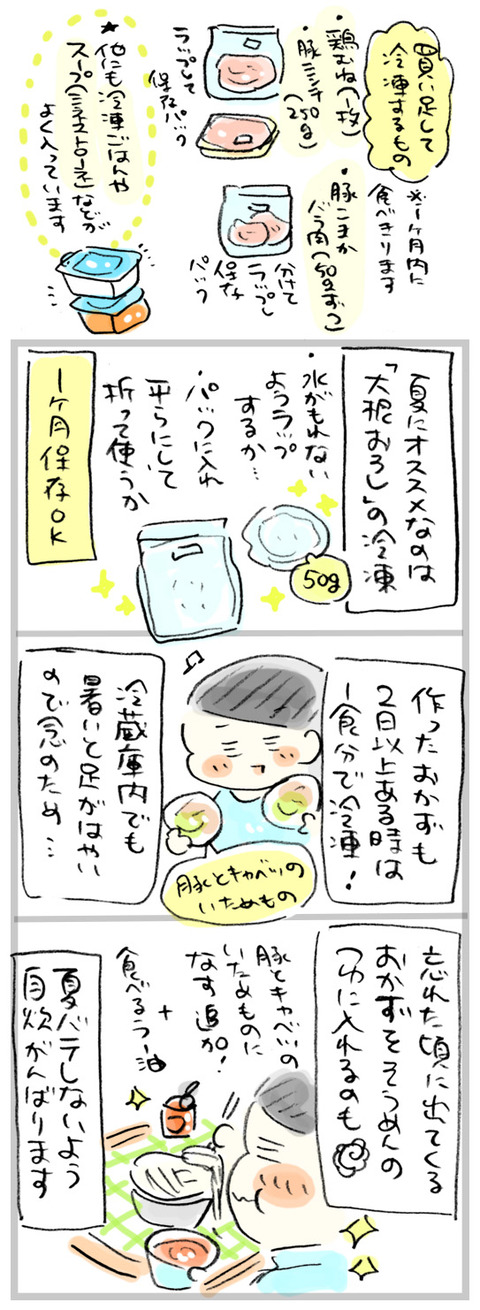 買い足して
冷凍するもの
※一ヶ月内に
食べきります
・鶏むね(一枚)
・豚ミンチ(250g)
ラップして
保存パック
・豚こまか
バラ肉(50gずつ)
分けて
ラップし
保存
パック
★他にも冷凍ごはんや
スープ(ミネストローネ)などが
よく入っています
夏にオススメなのは
「大根おろし」の冷凍
・水がもれない
ようラップ
するか…
・パックに入れ
平らにして
折って使うか
50g
一ヶ月保存OK
作ったおかずも
2日以上ある時は
一食分で冷凍!
冷蔵庫内でも
暑いと足がはやい
ので念のため…
豚とキャベツの
いためもの
忘れた頃に出てくる
おかずをそうめんの
つゆに入れるのも
豚とキャベツの
いためものに
なす追加!
+
食べるラー油
夏バテしないよう
自炊がんばります